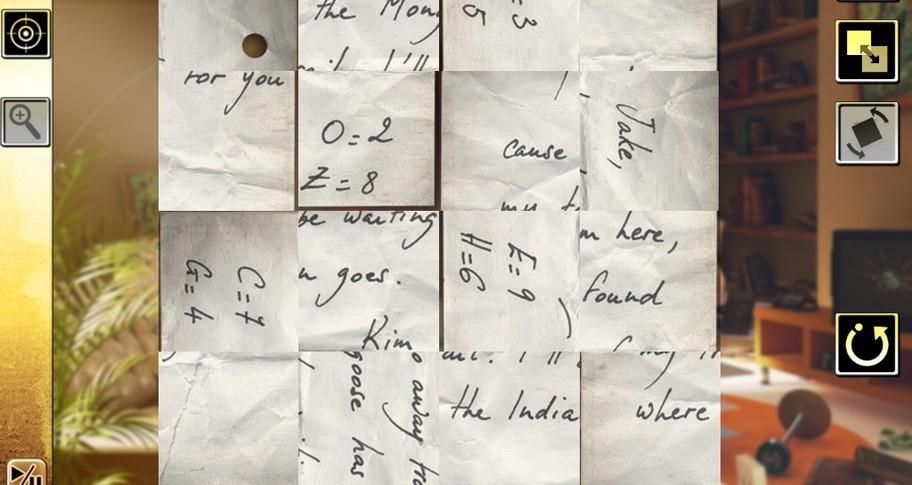 the Mon
I'll
= 3
5
for you
O = 2
Z = 8
cause
my t
Jake,
C = 7
G = 4
be waiting
n goes.
Kim
E = 9
H = 6
m here,
found
o away tra
goose has
I'll
the India
where